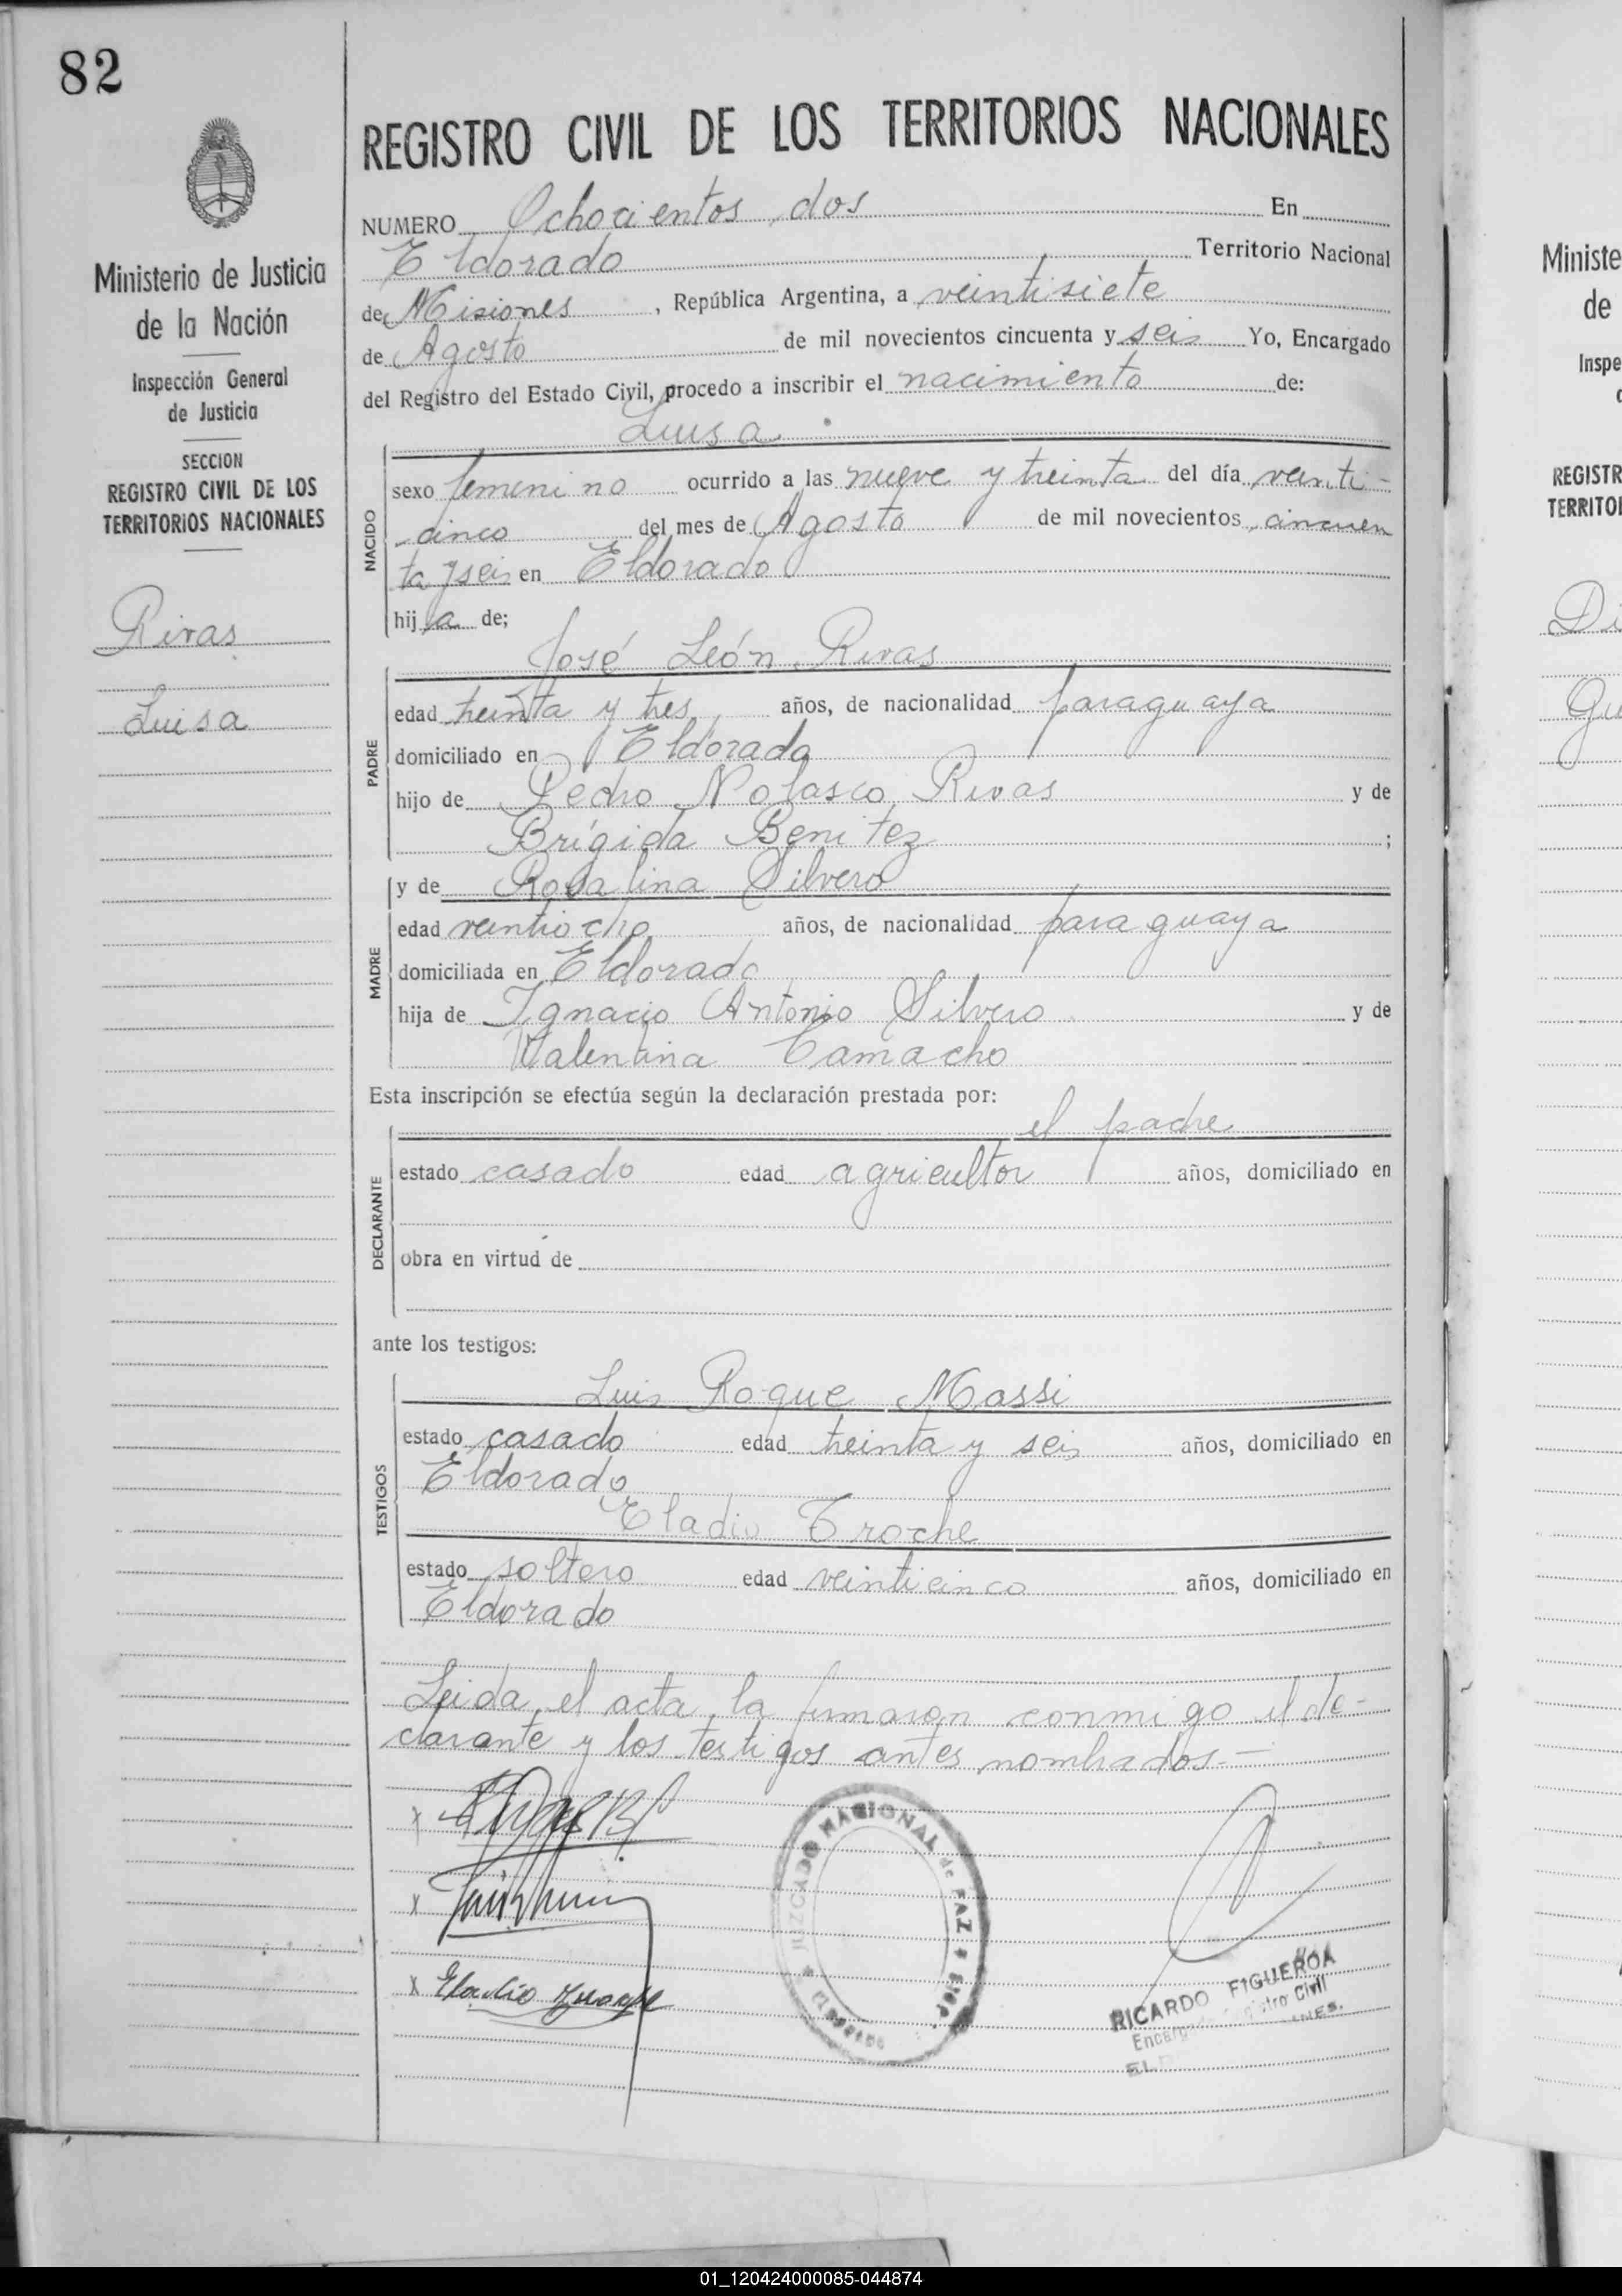 82
Ministerio de Justicia
de la Nación
Inspección General
de Justicia
SECCION
REGISTRO CIVIL DE LOS
TERRITORIOS NACIONALES
Rivas
Luisa
REGISTRO CIVIL DE LOS TERRITORIOS NACIONALES
NUMERO Ochocientos dos En
Eldorado Territorio Nacional
de Misiones, República Argentina, a veintisiete
de Agosto de mil novecientos cincuenta y seis Yo, Encargado
del Registro del Estado Civil, procedo a inscribir el nacimiento de:
Luisa
NACIDO
sexo femenino ocurrido a las nueve y treinta del día veinti-
cinco del mes de Agosto de mil novecientos cincuen
ta y seis en Eldorado
hija de;
José León Rivas
PADRE
edad treinta y tres años, de nacionalidad paraguaya
domiciliado en Eldorado
hijo de Pedro Nolasco Rivas y de
Brígida Benitez ;
y de Rosalina Silvero
MADRE
edad veintiocho años, de nacionalidad paraguaya
domiciliada en Eldorado
hija de Ignacio Antonio Silvero y de
Valentina Camacho
Esta inscripción se efectúa según la declaración prestada por:
el padre
DECLARANTE
estado casado edad agricultor años, domiciliado en
obra en virtud de
ante los testigos:
Luis Roque Massi
TESTIGOS
estado casado edad treinta y seis años, domiciliado en
Eldorado
Eladio Troche
estado soltero edad veinticinco años, domiciliado en
Eldorado
Leida el acta, la firmaron conmigo el de-
clarante y los testigos antes nombrados.-
x
x
x Eladio Troche
JUZGADO NACIONAL de PAZ
RICARDO FIGUEROA
Registro Civil
Ministe
de
Inspe
REGISTR
TERRITOR
Di
Gu
01_120424000085-044874